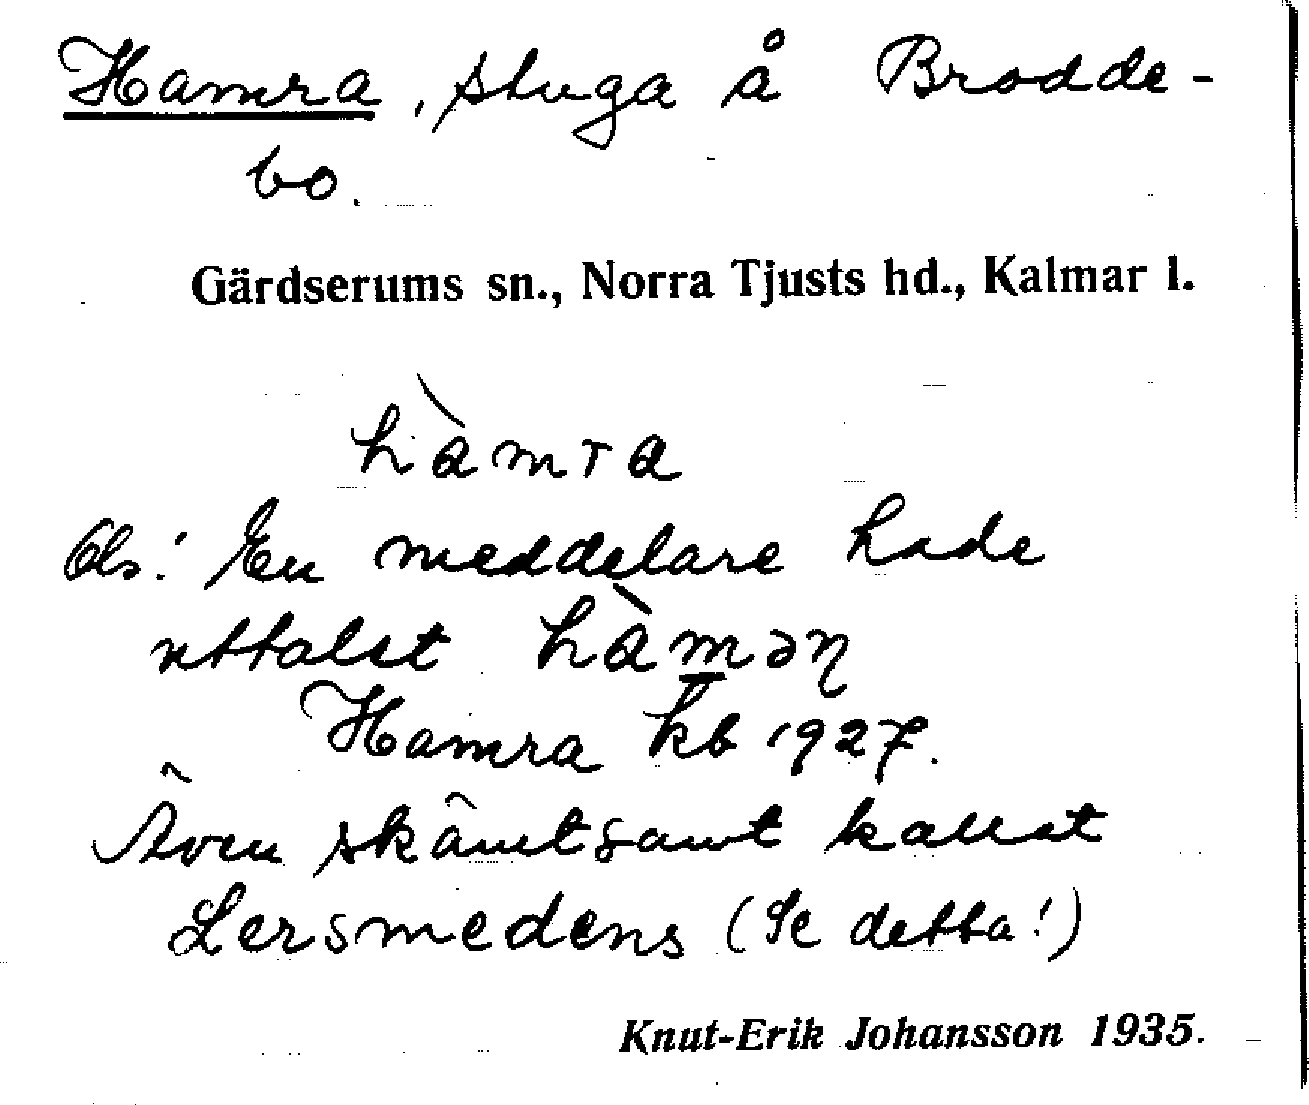 Hamra, stuga å Brodde-
bo.
Gärdserums sn., Norra Tjusts hd., Kalmar l.
hàmra
Obs! En meddelare hade
uttalet hàməɳ
Hamra kb 1927.
Även skämtsamt kallat
Lersmedens (Se detta!)
Knut-Erik Johansson 1935.